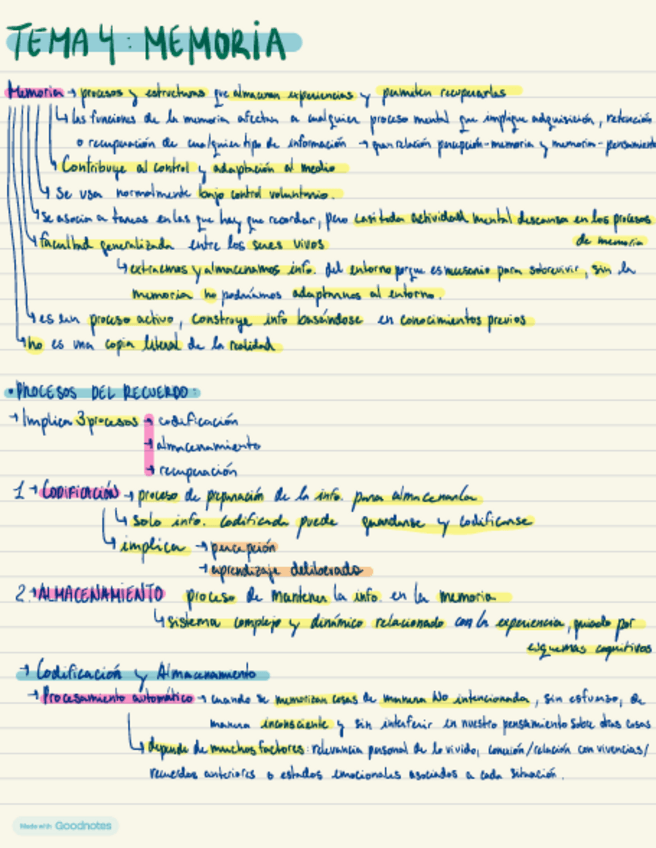 TEMA 4: MEMORIA
Memoria → procesos y estructuras que almacenan experiencias y permiten recuperarlas
↳ las funciones de la memoria afectan a cualquier proceso mental que implique adquisición, retención
o recuperación de cualquier tipo de información → gran relación percepción-memoria y memoria-pensamiento
↳ Contribuye al control y adaptación al medio
↳ Se usa normalmente bajo control voluntario.
↳ se asocia a tareas en las que hay que recordar, pero casi toda actividad mental descansa en los procesos
de memoria
↳ facultad generalizada entre los seres vivos
↳ extraemos y almacenamos info. del entorno porque es necesario para sobrevivir, sin la
memoria no podríamos adaptarnos al entorno.
↳ es un proceso activo, construye info basándose en conocimientos previos
↳ no es una copia literal de la realidad
• PROCESOS DEL RECUERDO:
→ Implica 3 procesos → codificación
→ almacenamiento
→ recuperación
1 → CODIFICACIÓN → proceso de preparación de la info. para almacenarla
↳ solo info. codificada puede guardarse y codificarse
↳ implica → percepción
→ aprendizaje deliberado
2. → ALMACENAMIENTO proceso de mantener la info. en la memoria
↳ sistema complejo y dinámico relacionado con la experiencia, guiado por
esquemas cognitivos
→ Codificación y Almacenamiento
→ Procesamiento automático → cuando se memorizan cosas de manera NO intencionada, sin esfuerzo, de
manera inconsciente y sin interferir en nuestro pensamiento sobre otras cosas
↳ depende de muchos factores: relevancia personal de lo vivido, conexión/relación con vivencias/
recuerdos anteriores o estados emocionales asociados a cada situación.
Made with Goodnotes